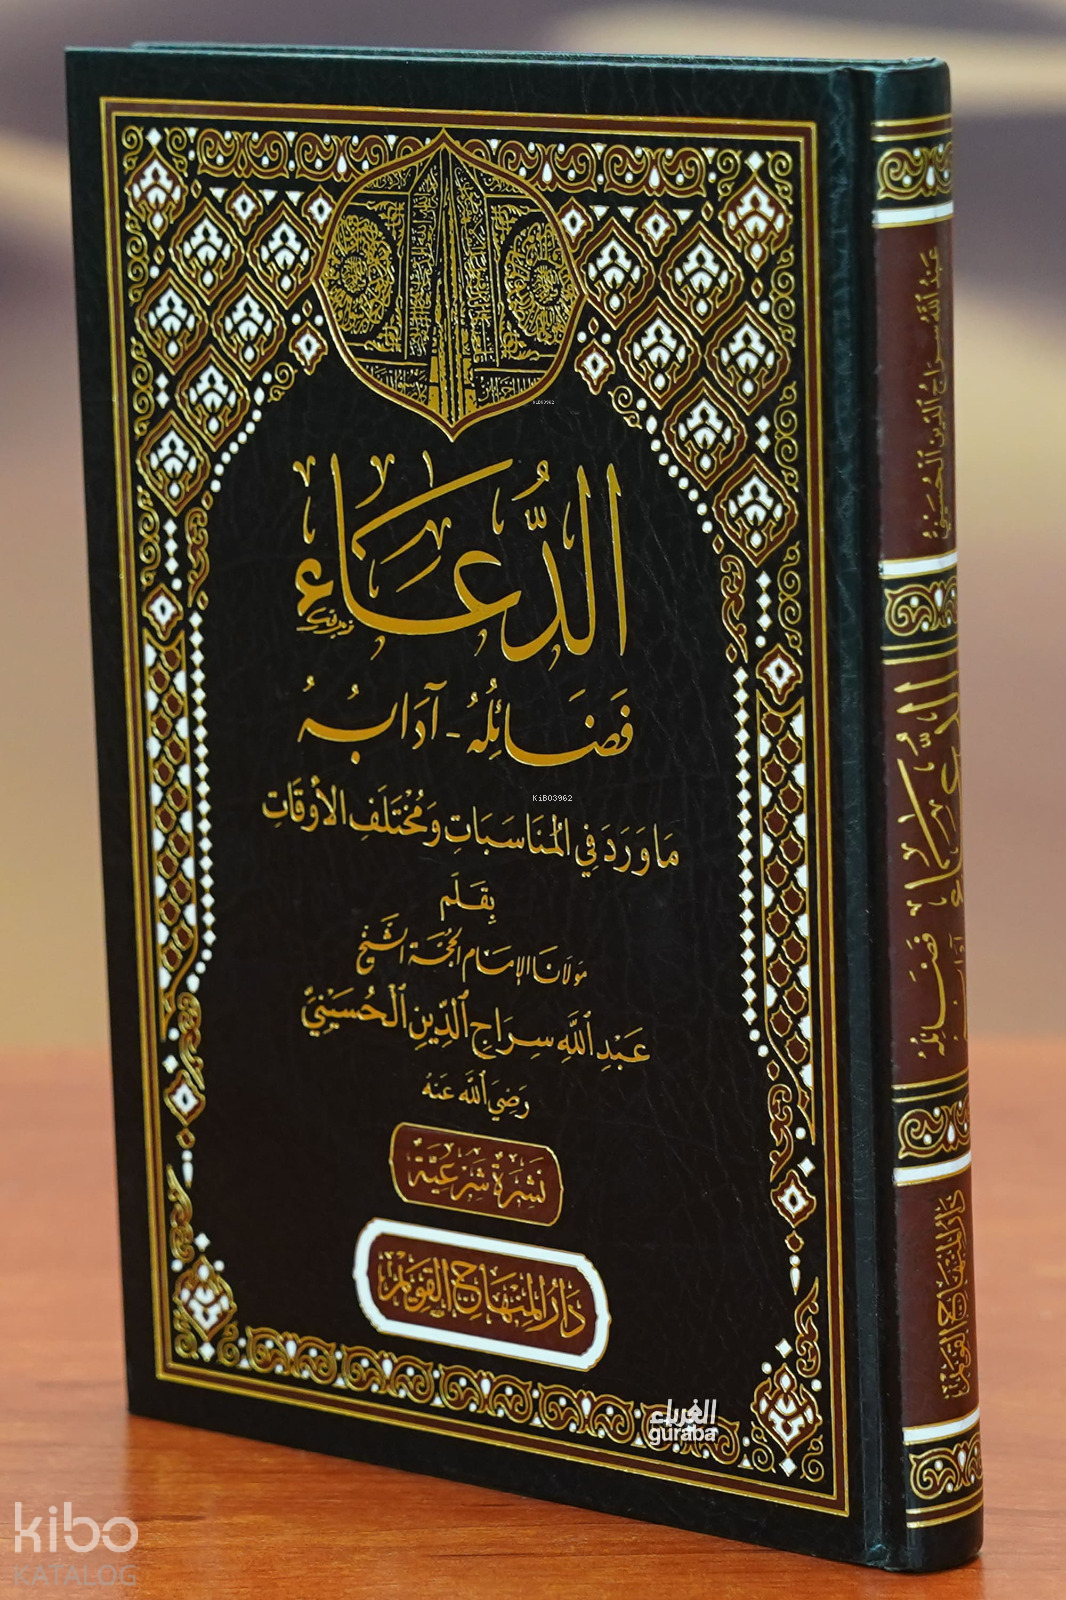 الدُّعَاء
فَضَائِلُهُ - آدَابُهُ
مَا وَرَدَ فِي الْمُنَاسَبَاتِ وَمُخْتَلَفِ الْأَوْقَاتِ
بِقَلَم
مَوْلَانَا الإِمَام الحُجَّة الشَّيْخ
عَبْدِ اللَّهِ سِرَاجِ الدِّينِ الْحُسَيْنِيِّ
رَضِيَ اللَّه عَنهُ
نَشْرَةٌ شَرْعِيَّة
دَارُ الْمِنْهَاجِ الْقَوِيْمِ
عَبْدُ اللَّهِ سِرَاجُ الدِّينِ الْحُسَيْنِيُّ
الدُّعَاء فَضَائِلُهُ آدَابُهُ
دَارُ الْمِنْهَاجِ الْقَوِيْمِ
KİBO3962
KİBO3962
الغرباء
guraba
kibo
KATALOG